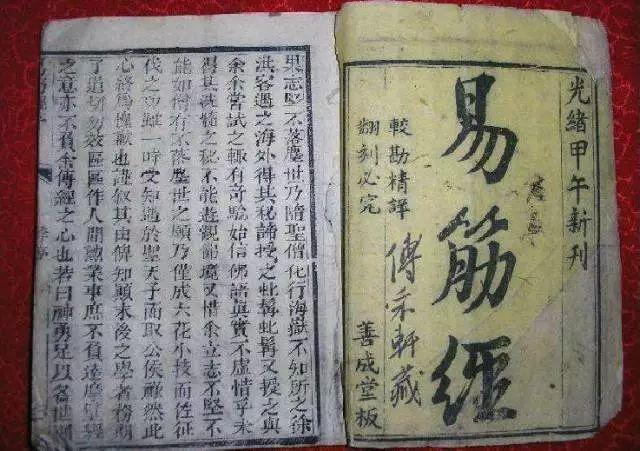 光緒甲午新刊
易筋經
較勘精譯
翻刻必究
傅采軒藏
善成堂板
果志堅不落塵世乃隋聖僧化行海嶽不知所之徐
洪客遇之海外得其秘諦授之虬髯虬髯又授之與
余余嘗試之輒有奇騐始信佛語真實不虛惜乎未
得其洗髓之秘不能遊觀佛境又惜余立志不堅不
能如僧有不落塵世之願乃僅成六花小技而佐征
伐之功雖一時受知遇於聖天子而取公侯雖然此
心終爲愧歉也謹叙其由俾知顛末後之學者務期
了道切勿效區區作人間勳業事庶不負達摩
之意亦不負余傳經之心也若曰神勇足以名世